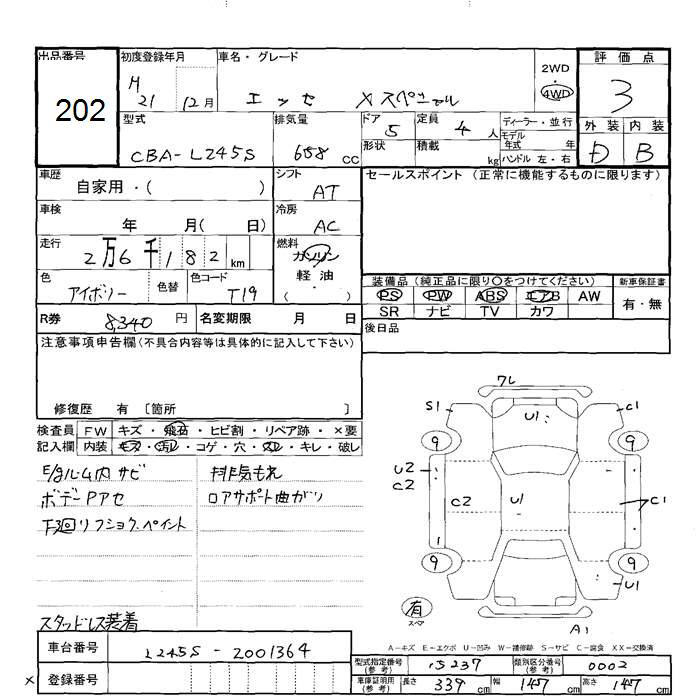 出品番号 初度登録年月 車名・グレード 2WD・4WD 評価点
202 H21 12月 エッセ Xスペシャル 3
型式 排気量 ドア 定員 ディーラー・並行 外装 内装
CBA-L245S 658 CC 5 4人 モデル年式 年 D B
形状 積載 kg ハンドル 左・右
車歴 シフト セールスポイント (正常に機能するものに限ります)
自家用・( ) AT
車検 年 月( 日) 冷房 AC
走行 2万6千182km 燃料 ガソリン
軽油
( )
色 アイボリー 色替 色コード T19
装備品 (純正品に限り○をつけてください) 新車保証書
PS PW ABS エアB AW 有・無
SR ナビ TV カワ
R券 8340円 名変期限 月 日 後日品
注意事項申告欄(不具合内容等は具体的に記入して下さい)
修復歴 有 〔箇所
検査員 FW キズ・飛石・ヒビ割・リペア跡・×要
記入欄 内装 キズ・汚レ・コゲ・穴・スレ・キレ・破レ
E/gルーム内 サビ 排気もれ
ボデーPアセ ロアサポート曲がり
下回リフショク.ペイント
スタッドレス装着
ワレ
S1 U1 C1
9 9
U2
C2 C2 U1 C1
9 9
U1
有
スペア
A1
A-キズ E-エクボ U-凹み W-補修跡 S-サビ C-腐食 XX-交換済
車台番号 L245S - 2001364
×登録番号
型式指定番号(参考) 15237 類別区分番号(参考) 0002
車庫証明用(参考) 長さ 339cm 幅 147cm 高さ 147cm